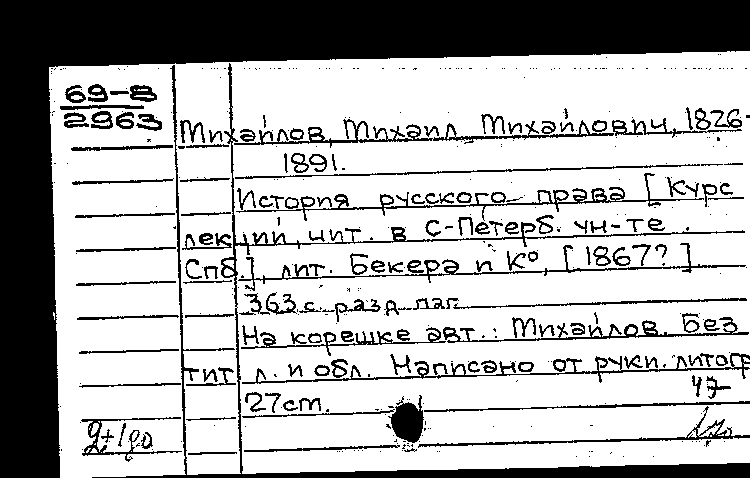 69-8
2963
Михайлов, Михаил Михайлович, 1826-
1891.
История русского права [Курс
лекций, чит. в С-Петерб. ун-те.
Спб.], лит. Бекера и К°, [1867?].
363 с. разд. паг.
На корешке авт.: Михайлов. Без
тит. л. и обл. Написано от руки. литогр
27cm.
47